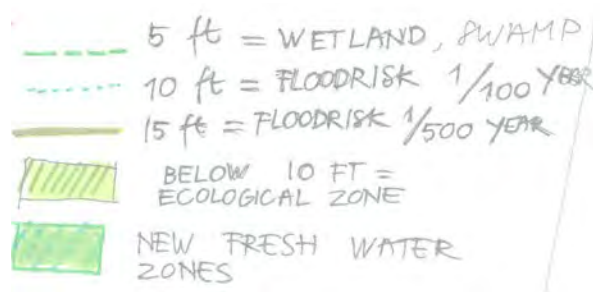 5 ft = WETLAND, SWAMP
10 ft = FLOODRISK 1/100 YEAR
15 ft = FLOODRISK 1/500 YEAR
BELOW 10 FT =
ECOLOGICAL ZONE
NEW FRESH WATER
ZONES